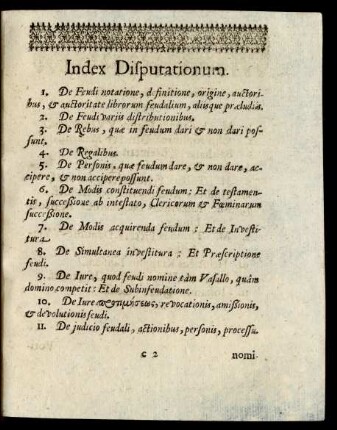 Index Disputationum.
1. De Feudi notatione, definitione, origine, auctori-
bus, & auctoritate librorum feudalium, aliisque præludiis.
2. De Feudi variis distributionibus.
3. De Rebus, quæ in feudum dari & non dari pos-
sunt.
4. De Regalibus.
5. De Personis, quæ feudum dare, & non dare, ac-
cipere, & non accipere possunt.
6. De Modis constituendi feudum; Et de testamen-
tis, successione ab intestato, Clericorum & Fœminarum
successione.
7. De Modis acquirenda feudum; Et de Investi-
tura.
8. De Simultanea investitura; Et Præscriptione
feudi.
9. De Iure, quod feudi nomine tàm Vasallo, quàm
domino competit: Et de Subinfeudatione.
10. De Iure προτιμήσεως, revocationis, amißionis,
& devolutionis feudi.
11. De judicio feudali, actionibus, personis, processu.
c 2 nomi